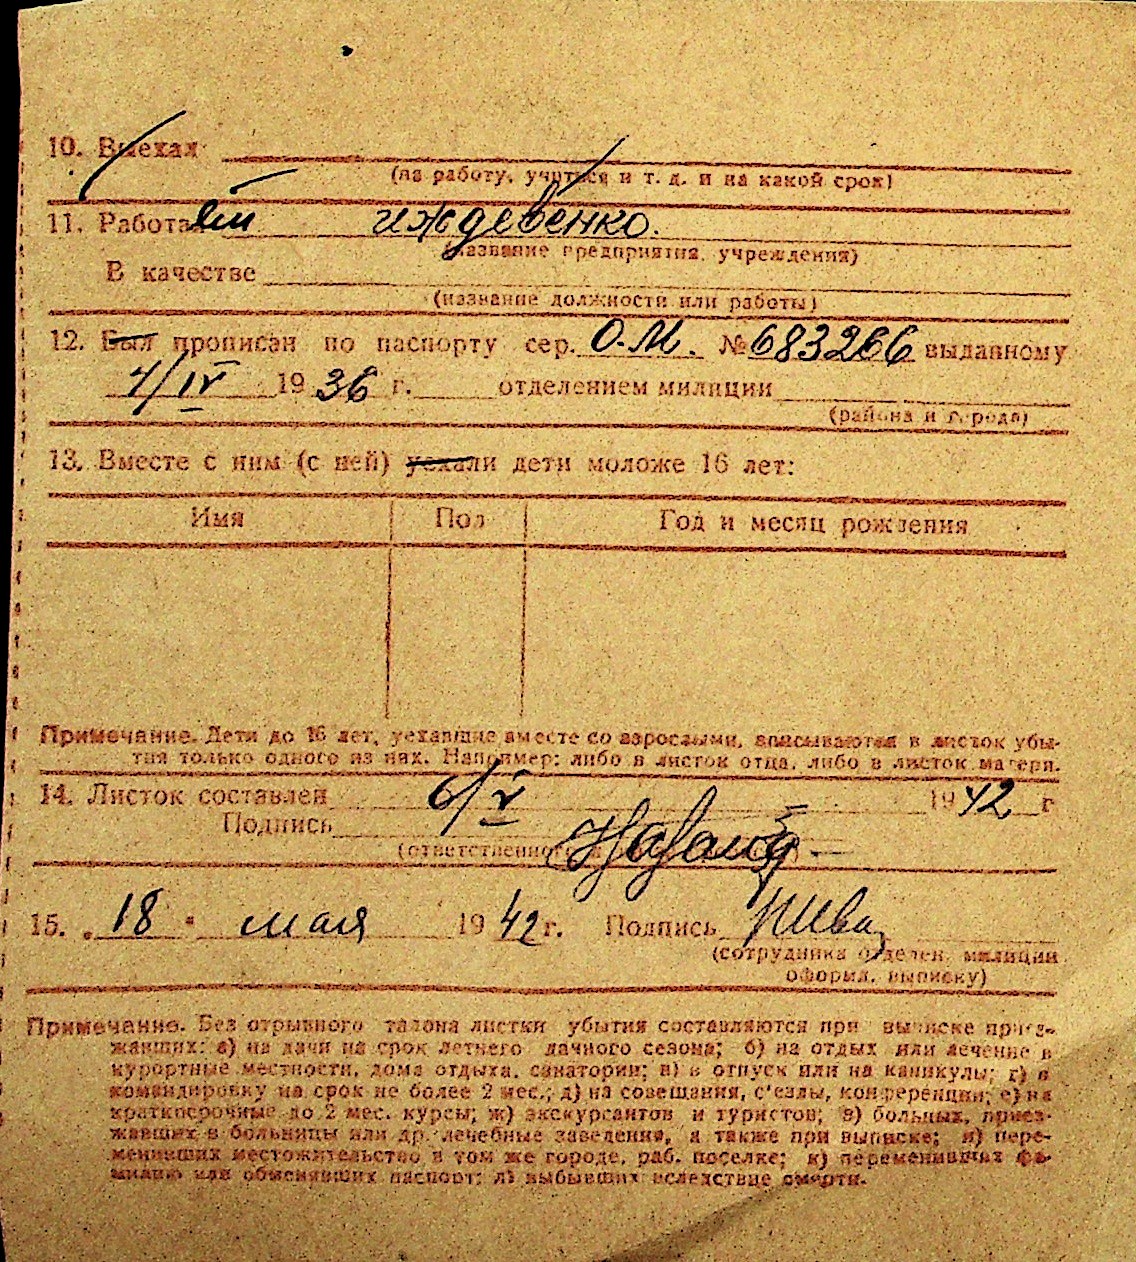 10. Выехал
(на работу, учиться и т. д. и на какой срок)
11. Работает иждевенко.
(название предприятия, учреждения)
В качестве
(название должности или работы)
12. Был прописан по паспорту сер. О.М. № 683266 выданному
4/IV 1936 г. отделением милиции
(района и города)
13. Вместе с ним (с ней) уехали дети моложе 16 лет:
Имя Пол Год и месяц рождения
Примечание. Дети до 16 лет, уехавшие вместе со взрослыми, вписываются в листок убы-
тия только одного из них. Например: либо в листок отца, либо в листок матери.
14. Листок составлен 6/V 1942 г
Подпись
(ответственного
15. „18" мая 1942 г. Подпись
(сотрудника отделен. милиции
оформл. выписку)
Примечание. Без отрывного талона листки убытия составляются при выписке приез-
жавших: а) на дачи на срок летнего дачного сезона; б) на отдых или лечение в
курортные местности, дома отдыха, санатории; в) в отпуск или на каникулы; г) в
командировку на срок не более 2 мес.; д) на совещания, с'езды, конференции; е) на
краткосрочные до 2 мес. курсы; ж) экскурсантов и туристов; з) больных, приез-
жавших в больницы или др. лечебные заведения, а также при выписке; и) пере-
менивших местожительство в том же городе, раб. поселке; к) переменивших фа-
милию или обменявших паспорт; л) выбывших вследствие смерти.